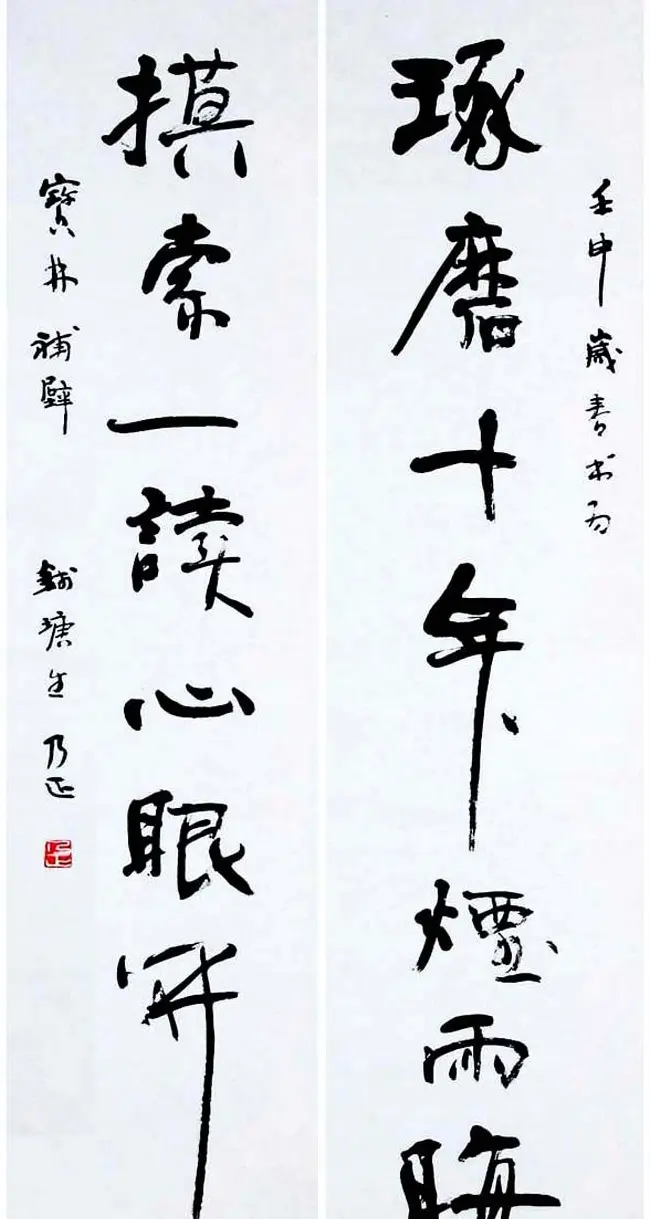 琢磨十年煙雨晦
壬申歲春书为
摸索一讀心眼開
寶林補壁
錢塘生乃正